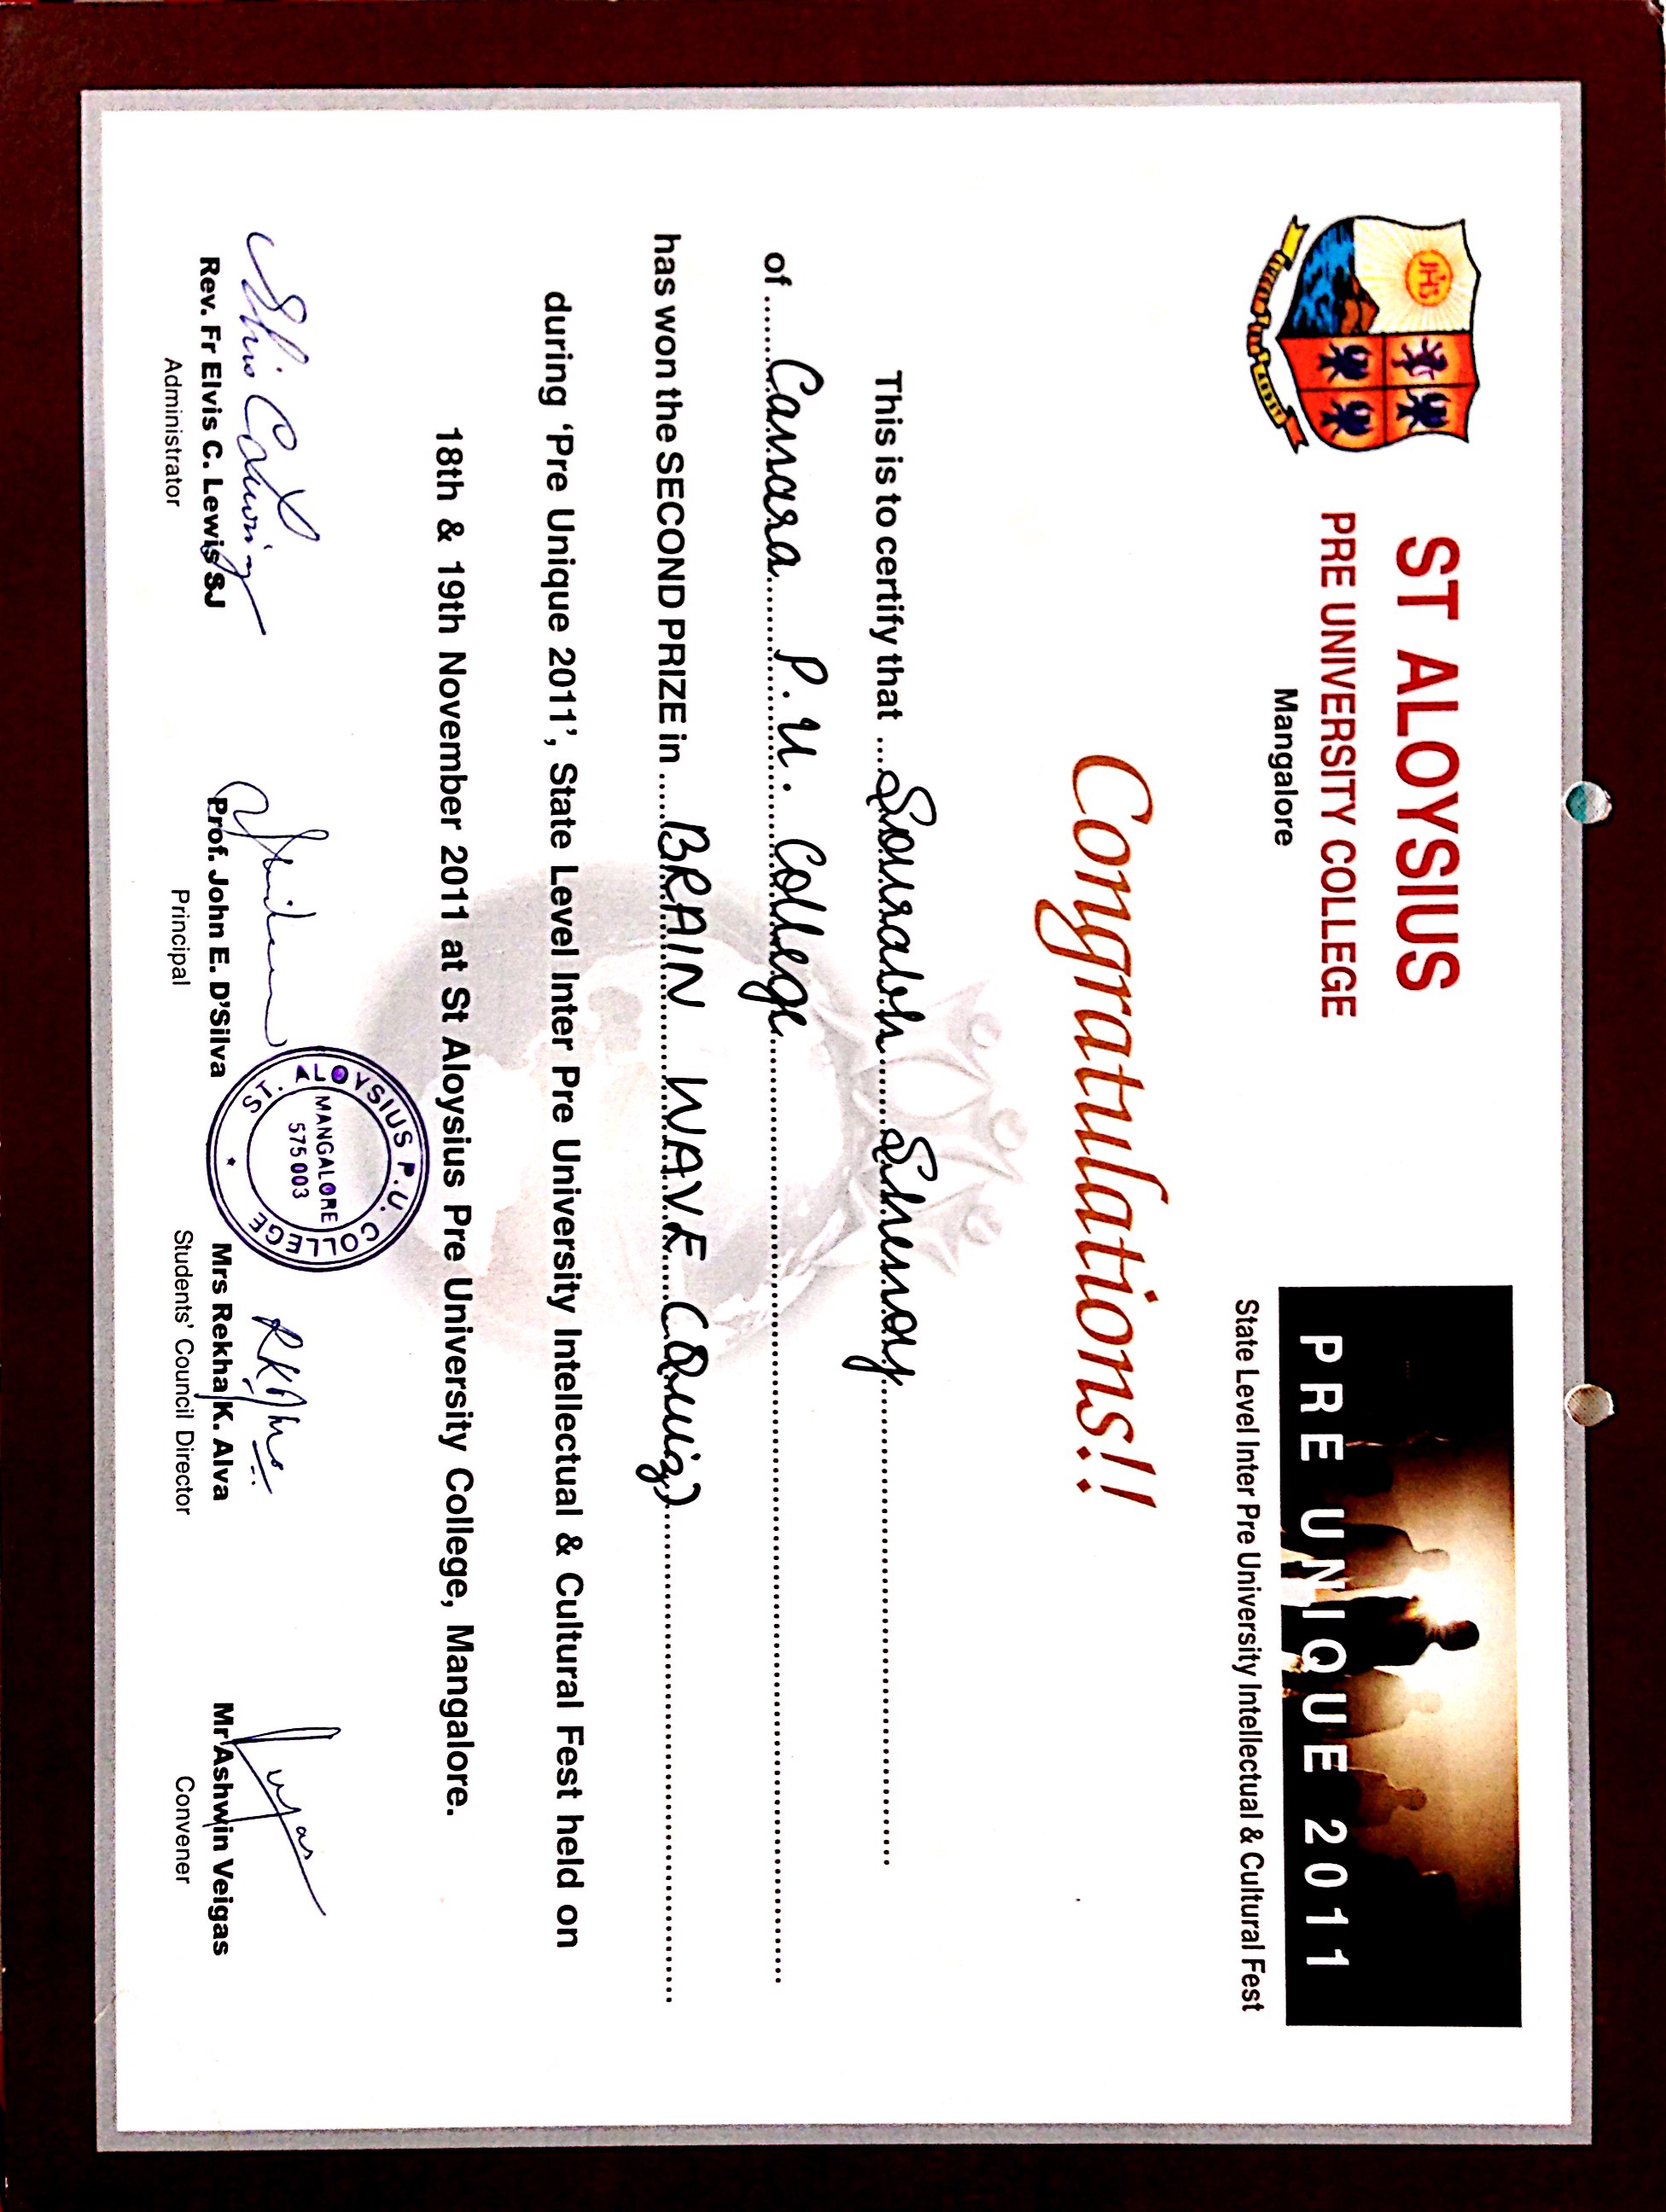 ST ALOYSIUS
PRE UNIVERSITY COLLEGE
Mangalore
JHS
PRE UNIQUE 2011
State Level Inter Pre University Intellectual & Cultural Fest
Congratulations!!
This is to certify that Sourabh Shenoy
of Canara P.U. College
has won the SECOND PRIZE in BRAIN WAVE (Quiz)
during ‘Pre Unique 2011’, State Level Inter Pre University Intellectual & Cultural Fest held on
18th & 19th November 2011 at St Aloysius Pre University College, Mangalore.
ST. ALOYSIUS P.U. COLLEGE
MANGALORE
575 003
Rev. Fr Elvis C. Lewis SJ
Administrator
Prof. John E. D’Silva
Principal
Mrs Rekha K. Alva
Students’ Council Director
Mr Ashwin Veigas
Convener